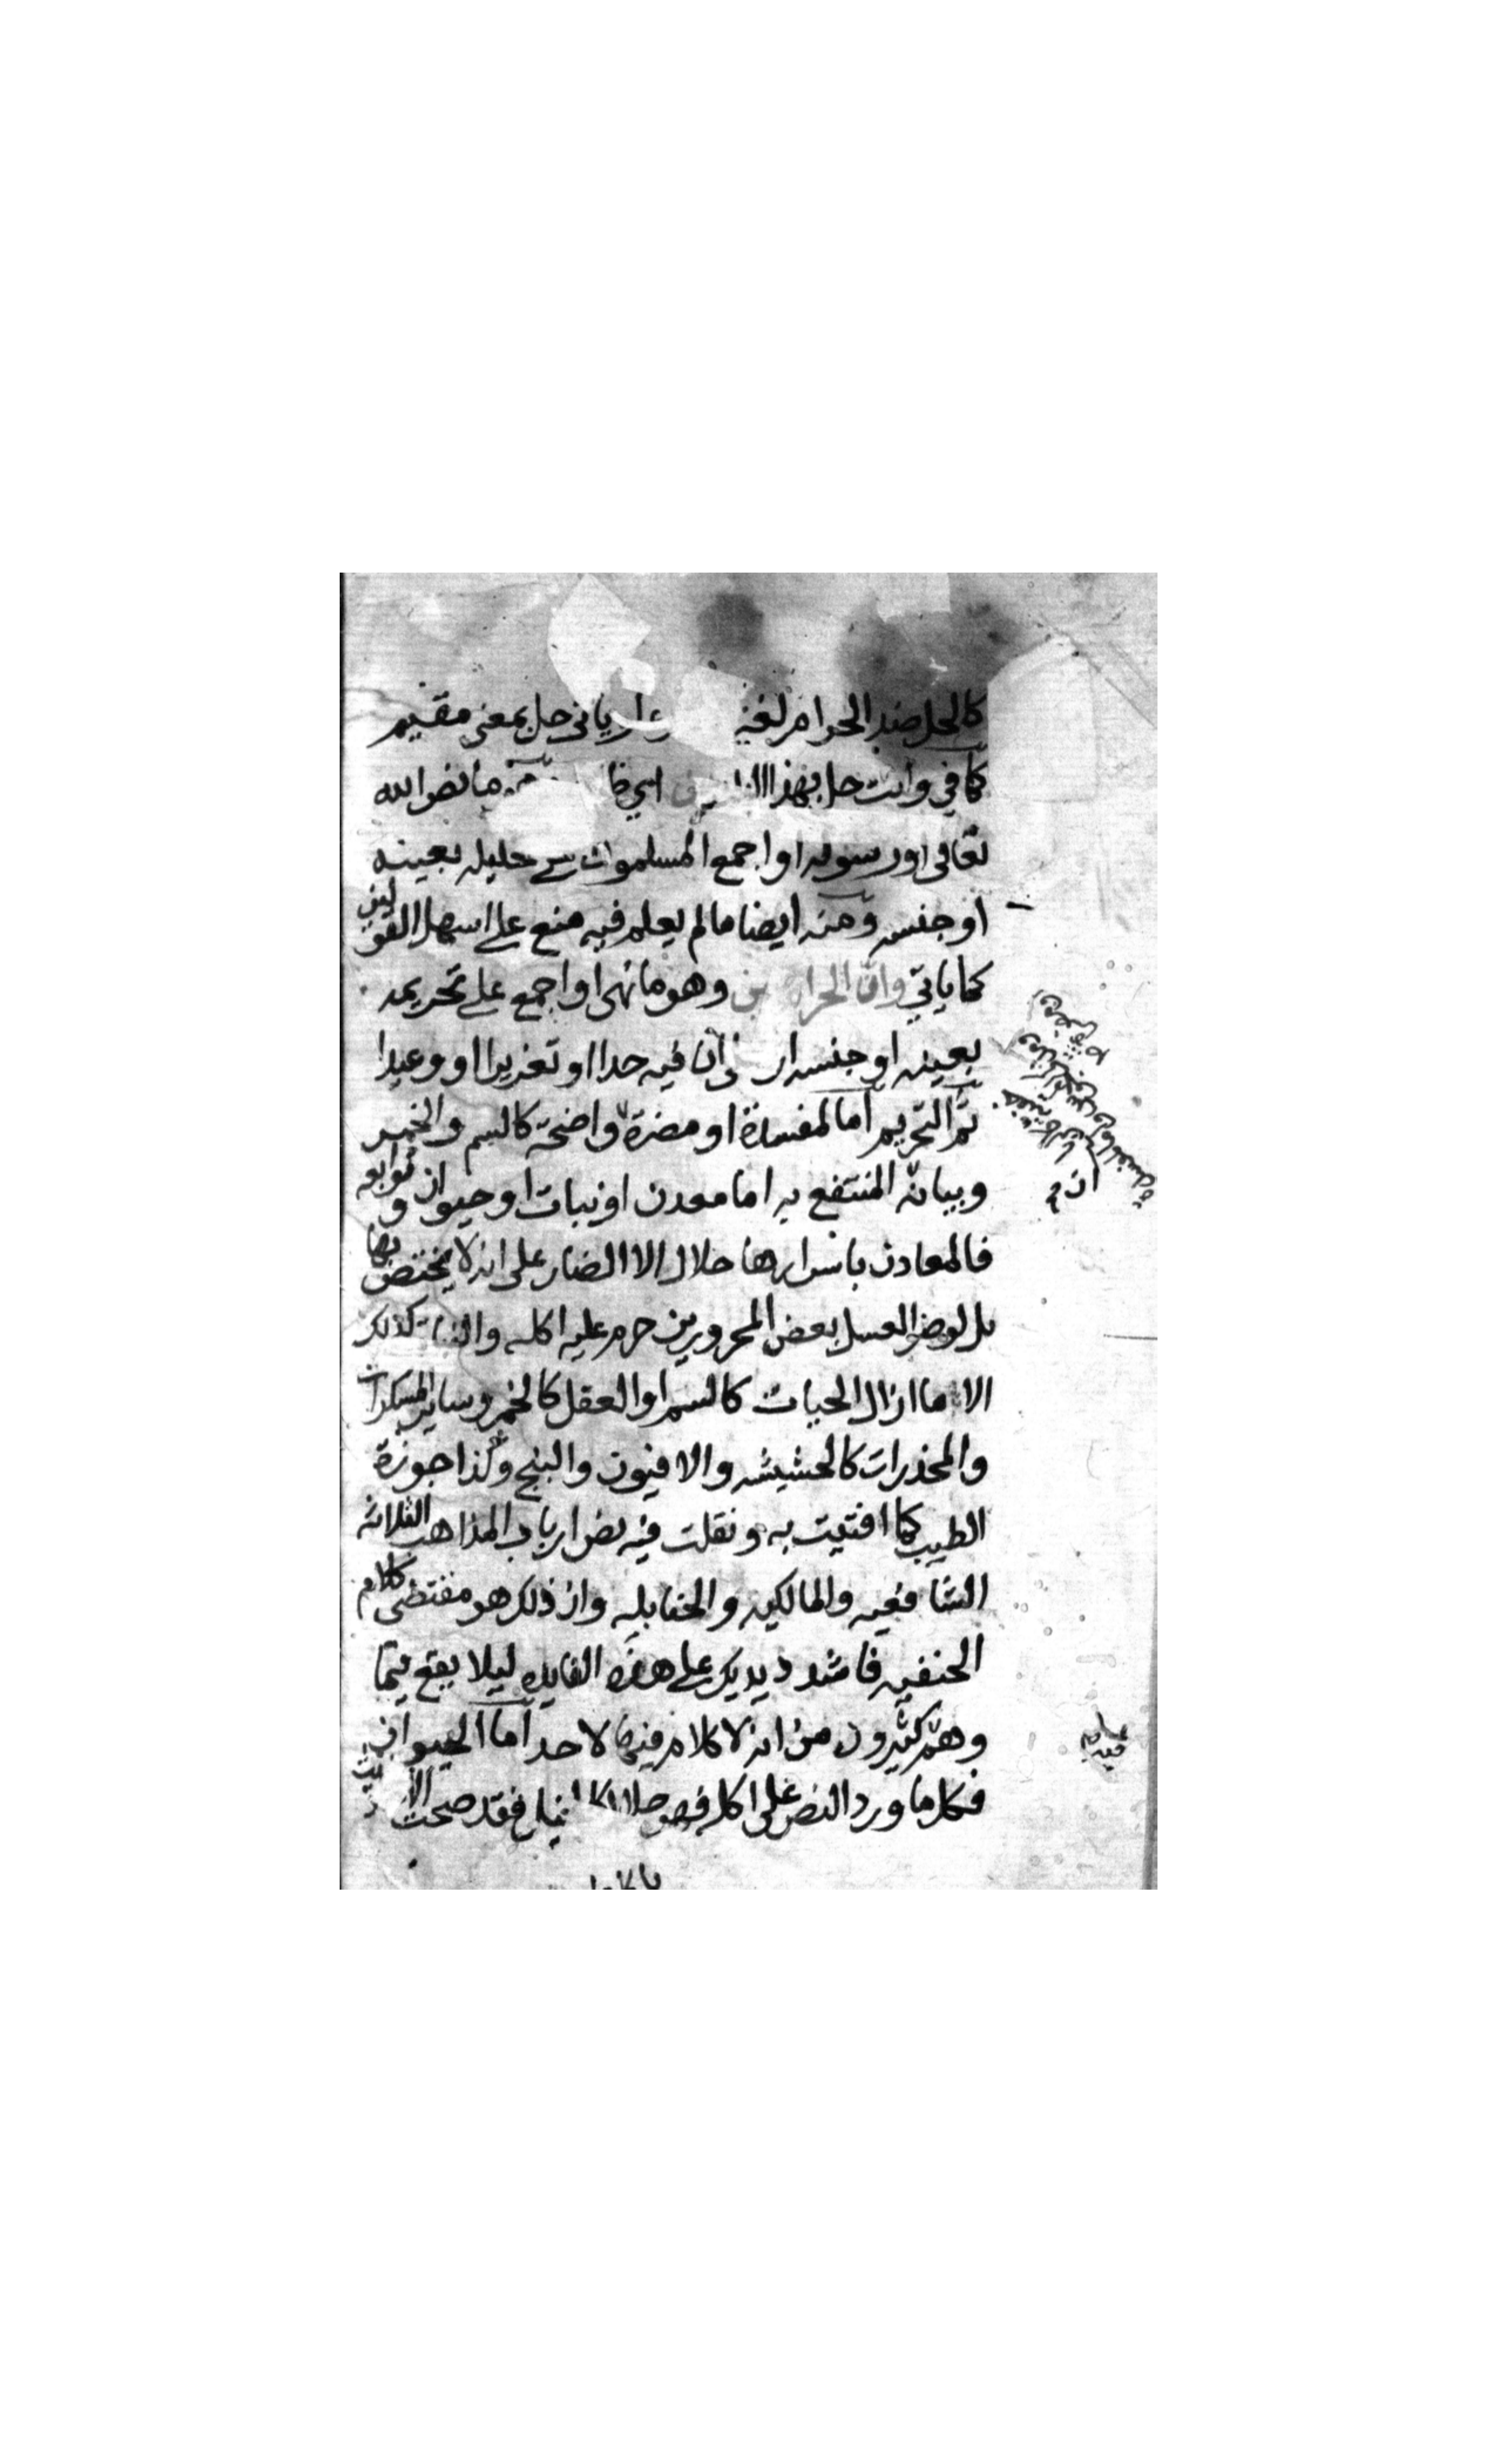 كالحل ضد الحرام لغة وياتى حل بمعنى مقيم
كما في وانت حل بهذا اي ما نص الله
تعالى او رسوله او اجمع المسلمون على حليله بعينه
او جنسه ومنه ايضا ما لم يعلم فيه منع على اسهل القولين
كما ياتي وان الحرام بين وهو ما نهى او اجمع على تحريمه
بعينه او جنسه او ان فيه حدا او تعزيرا او وعيدا
ثم التحريم اما لمفسدة او مضرة واضحة كالسم والخمر
وبيانه المنتفع به اما معدن او نبات او حيوان وتوابعه
فالمعادن باسرها حلال الا الضار على انه لا يختص بها
بل لو ضر العسل بعض المحرورين حرم عليه اكله والنبات كذلك
الا ما ازال الحيات كالسم او العقل كالخمر وساير المسكرات
والمخدرات كالحشيشه والافيون والبنج وكذا جوزة
الطيب كما افتيت به ونقلت فيه نص ارباب المذاهب الثلاثه
الشافعيه والمالكيه والحنابله وان ذلك هو مقتضى كلام
الحنفيه فاشدد يديك على هذه الفايده ليلا يقع فيما
وهم كثيرون من انه لا كلام فيها لاحد اما الحيوان
فكلما ورد النص على اكله فهو حلال فقد صحت